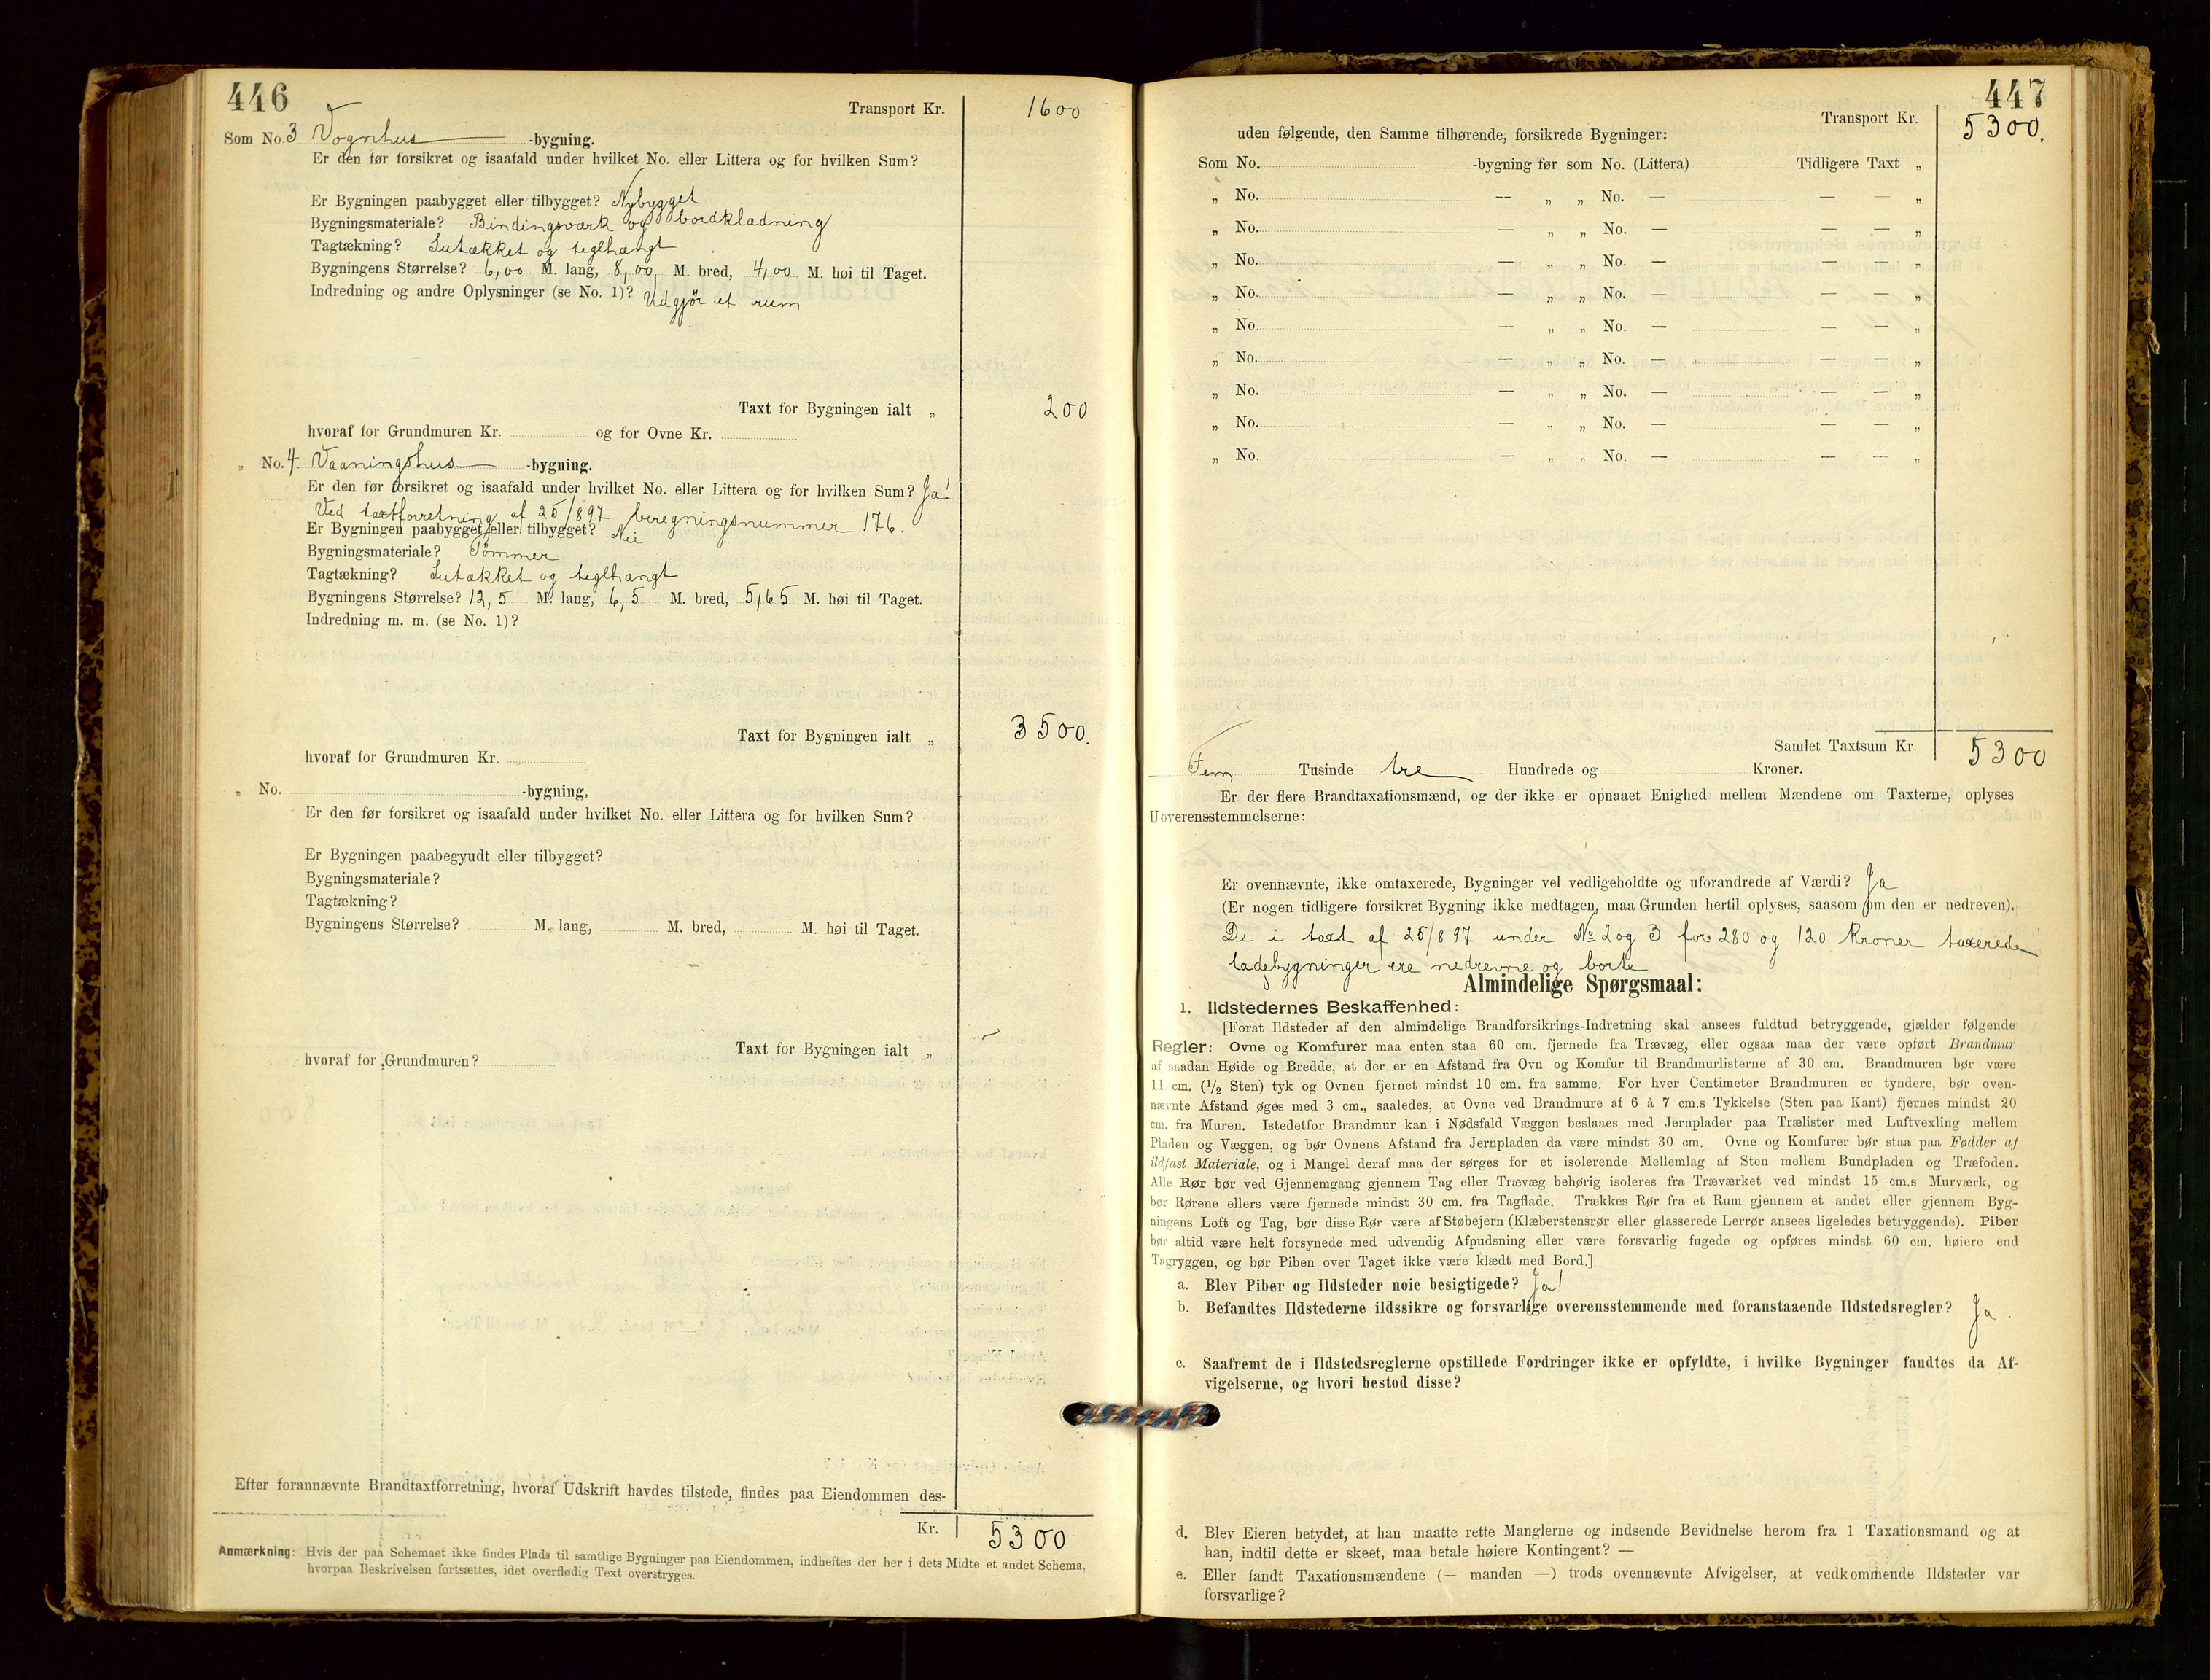 446
Transport Kr. 1600
Som No. 3 Vognhus -bygning.
Er den før forsikret og isaafald under hvilket No. eller Littera og for hvilken Sum?
Er Bygningen paabygget eller tilbygget? Nybygget
Bygningsmateriale? Bindingsværk og bordklædning
Tagtækning? Sutækket og teglhængt
Bygningens Størrelse? 6,00 M. lang, 8,00 M. bred, 4,00 M. høi til Taget.
Indredning og andre Oplysninger (se No. 1)? Udgjør et rum
Taxt for Bygningen ialt „ 200
hvoraf for Grundmuren Kr. og for Ovne Kr.
„ No. 4 Vaaningshus -bygning.
Er den før forsikret og isaafald under hvilket No. eller Littera og for hvilken Sum? Ja!
Ved taxtforretning af 25/8 97 beregningsnummer 176.
Er Bygningen paabygget eller tilbygget? Nei
Bygningsmateriale? Tømmer
Tagtækning? Sutækket og teglhængt
Bygningens Størrelse? 12,5 M. lang, 6,5 M. bred, 5,65 M. høi til Taget.
Indredning m. m. (se No. 1)?
Taxt for Bygningen ialt „ 3500.
hvoraf for Grundmuren Kr.
„ No. -bygning,
Er den før forsikret og isaafald under hvilket No. eller Littera og for hvilken Sum?
Er Bygningen paabegyudt eller tilbygget?
Bygningsmateriale?
Tagtækning?
Bygningens Størrelse? M. lang, M. bred, M. høi til Taget.
Taxt for Bygningen ialt „ —
hvoraf for Grundmuren?
Efter forannævnte Brandtaxtforretning, hvoraf Udskrift havdes tilstede, findes paa Eiendommen des-
Kr. 5300
Anmærkning: Hvis der paa Schemaet ikke findes Plads til samtlige Bygninger paa Eiendommen, indheftes der her i dets Midte et andet Schema,
hvorpaa Beskrivelsen fortsættes, idet overflødig Text overstryges.
447
Transport Kr. 5300.
uden følgende, den Samme tilhørende, forsikrede Bygninger:
Som No. -bygning før som No. (Littera) Tidligere Taxt „
„ No. — „ „ No. — — — „
„ No. — „ „ No. — — — „
„ No. — „ „ No. — — — „
„ No. — „ „ No. — — — „
„ No. — „ „ No. — — — „
„ No. — „ „ No. — — — „
„ No. — „ „ No. — — — „
„ No. — „ „ No. — — — „
„ No. — „ „ No. — — — „
Samlet Taxtsum Kr. 5300
Fem Tusinde tre Hundrede og Kroner.
Er der flere Brandtaxationsmænd, og der ikke er opnaaet Enighed mellem Mændene om Taxterne, oplyses
Uoverensstemmelserne:
Er ovennævnte, ikke omtaxerede, Bygninger vel vedligeholdte og uforandrede af Værdi? Ja
(Er nogen tidligere forsikret Bygning ikke medtagen, maa Grunden hertil oplyses, saasom om den er nedreven).
De i taxt af 25/8 97 under № 2 og 3 for 280 og 120 Kroner taxerede
ladebygninger ere nedrevne og borte
Almindelige Spørgsmaal:
1. Ildstedernes Beskaffenhed:
[Forat Ildsteder af den almindelige Brandforsikrings-Indretning skal ansees fuldtud betryggende, gjælder følgende
Regler: Ovne og Komfurer maa enten staa 60 cm. fjernede fra Trævæg, eller ogsaa maa der være opført Brandmur
af saadan Høide og Bredde, at der er en Afstand fra Ovn og Komfur til Brandmurlisterne af 30 cm. Brandmuren bør være
11 cm. (1/2 Sten) tyk og Ovnen fjernet mindst 10 cm. fra samme. For hver Centimeter Brandmuren er tyndere, bør oven-
nævnte Afstand øges med 3 cm., saaledes, at Ovne ved Brandmure af 6 à 7 cm.s Tykkelse (Sten paa Kant) fjernes mindst 20
cm. fra Muren. Istedetfor Brandmur kan i Nødsfald Væggen beslaaes med Jernplader paa Trælister med Luftvexling mellem
Pladen og Væggen, og bør Ovnens Afstand fra Jernpladen da være mindst 30 cm. Ovne og Komfurer bør staa paa Fødder af
ildfast Materiale, og i Mangel deraf maa der sørges for et isolerende Mellemlag af Sten mellem Bundpladen og Træfoden.
Alle Rør bør ved Gjennemgang gjennem Tag eller Trævæg behørig isoleres fra Træværket ved mindst 15 cm.s Murværk, og
bør Rørene ellers være fjernede mindst 30 cm. fra Tagflade. Trækkes Rør fra et Rum gjennem et andet eller gjennem Byg-
ningens Loft og Tag, bør disse Rør være af Støbejern (Klæberstensrør eller glasserede Lerrør ansees ligeledes betryggende). Piber
bør altid være helt forsynede med udvendig Afpudsning eller være forsvarlig fugede og opføres mindst 60 cm. høiere end
Tagryggen, og bør Piben over Taget ikke være klædt med Bord.]
a. Blev Piber og Ildsteder nøie besigtigede? Ja!
b. Befandtes Ildstederne ildssikre og forsvarlige overensstemmende med foranstaaende Ildstedsregler? Ja.
c. Saafremt de i Ildstedsreglerne opstillede Fordringer ikke er opfyldte, i hvilke Bygninger fandtes da Af-
vigelserne, og hvori bestod disse?
d. Blev Eieren betydet, at han maatte rette Manglerne og indsende Bevidnelse herom fra 1 Taxationsmand og at
han, indtil dette er skeet, maa betale høiere Kontingent? —
e. Eller fandt Taxationsmændene (— manden —) trods ovennævnte Afvigelser, at vedkommende Ildsteder var
forsvarlige?